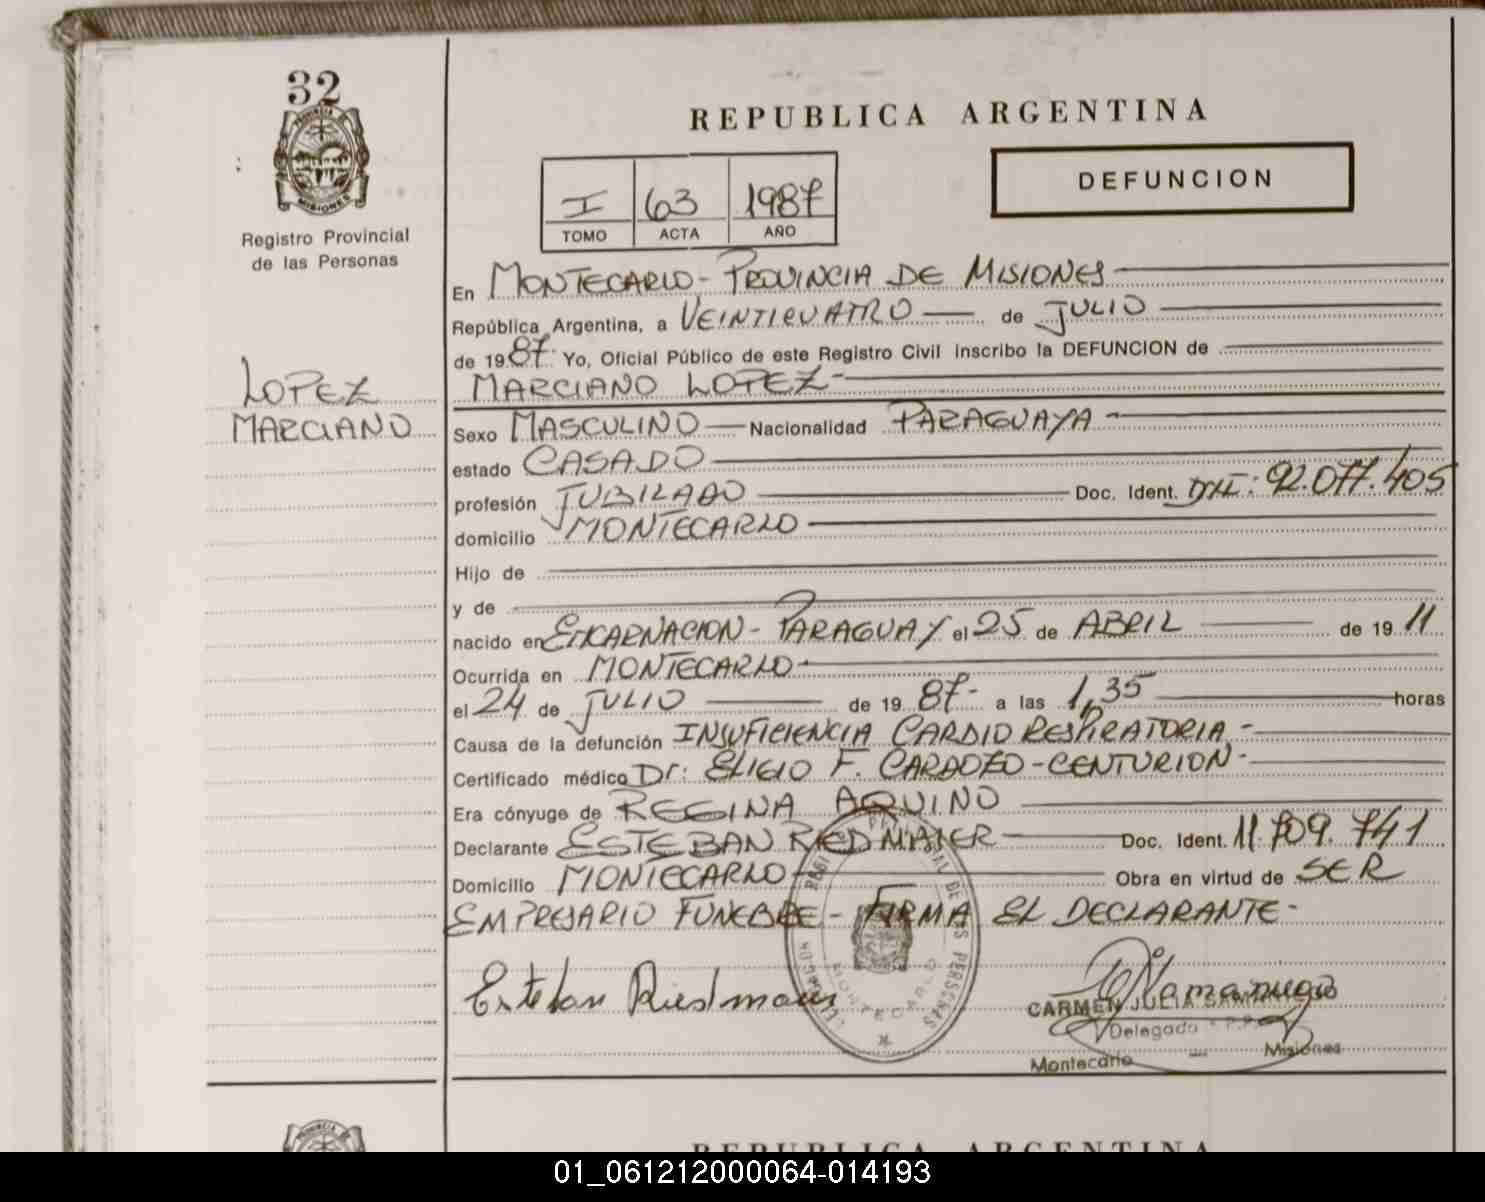 32
PROVINCIA DE
MISIONES
Registro Provincial
de las Personas
LOPEZ
MARCIANO
REPUBLICA ARGENTINA
I 63 1987
TOMO ACTA AÑO
DEFUNCION
En MONTECARLO - PROVINCIA DE MISIONES
República Argentina, a VEINTICUATRO de JULIO
de 1987 Yo, Oficial Público de este Registro Civil inscribo la DEFUNCION de
MARCIANO LOPEZ -
Sexo MASCULINO Nacionalidad PARAGUAYA -
estado CASADO
profesión JUBILADO Doc. Ident. DNI: 92.077.405
domicilio MONTECARLO
Hijo de
y de
nacido en ENCARNACION - PARAGUAY el 25 de ABRIL de 19 11
Ocurrida en MONTECARLO
el 24 de JULIO de 19 87 - a las 1,35 horas
Causa de la defunción INSUFICIENCIA CARDIO RESPIRATORIA -
Certificado médico Dr: ELIGIO F. CARDOZO - CENTURION -
Era cónyuge de REGINA AQUINO
Declarante ESTEBAN RIEDMAIER Doc. Ident. 11.709.741
Domicilio MONTECARLO Obra en virtud de SER
EMPRESARIO FUNEBRE - FIRMA EL DECLARANTE -
Esteban Riedmaier
CARMEN JULIA
Delegada
Montecarlo Misiones
DE LAS PERSONAS
MONTECARLO
REPUBLICA ARGENTINA
01_061212000064-014193